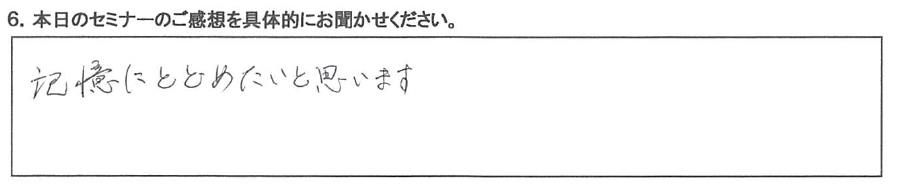 6. 本日のセミナーのご感想を具体的にお聞かせください。
記憶にとどめたいと思います